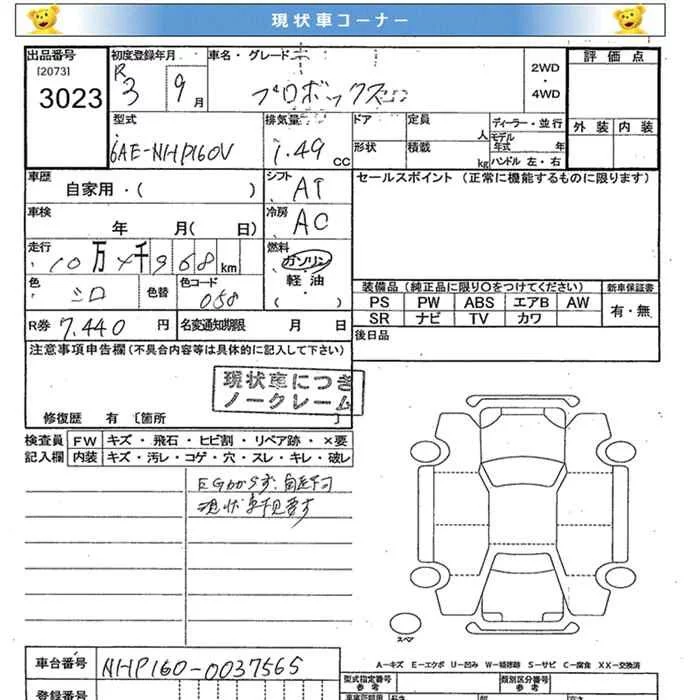 現状車コーナー
出品番号 初度登録年月 車名・グレード 2WD・4WD 評価点
[2073] R
3023 3 9月 プロボックス
型式 排気量 ドア 定員 人 ディーラー・並行 外装 内装
モデル年式 年
6AE-NHP160V 1.49 CC 形状 積載 kg ハンドル 左・右
車歴 自家用・( ) シフト AT セールスポイント(正常に機能するものに限ります)
車検 年 月( 日) 冷房 AC
走行 10万 千968km 燃料 ガソリン
軽油
( )
色 シロ 色替 色コード 058 装備品(純正品に限り○をつけてください) 新車保証書
PS PW ABS エアB AW 有・無
SR ナビ TV カワ
R券 7,440円 名変通知期限 月 日 後日品
注意事項申告欄(不具合内容等は具体的に記入して下さい)
現状車につき
ノークレーム
修復歴 有 〔箇所 〕
検査員 FW キズ・飛石・ヒビ割・リペア跡・×要
記入欄 内装 キズ・汚レ・コゲ・穴・スレ・キレ・破レ
EGかからず、自走不可
現状車見要す
スペア
A-キズ E-エクボ U-凹み W-補修跡 S-サビ C-腐食 XX-交換済
車台番号 NHP160-0037565 型式指定番号 類別区分番号
参考 参考
登録番号 車両制限 長さ 幅 高さ